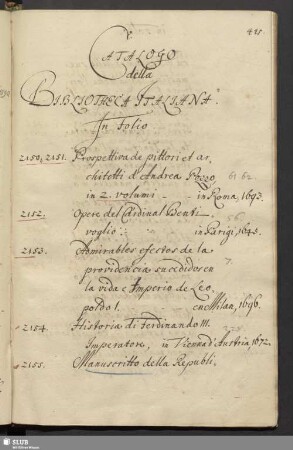 421
Catalogo
della
Bibliotheca Italiana
In Folio
2150, 2151. Prospettiva de pittori et ar
chitetti d'Andrea Pozzo 61 62
in 2. volumi - in Roma, 1693.
2152. Opere del Cardinal Benti
voglio - in Parigi, 1645.
2153. Admirables efectos de la
providencia succedidos en
la vida e Imperio de Leo
poldo I. en Milan, 1696.
2154. Historia di Ferdinando III.
Imperatore, in Vienna d'Austria, 1672.
2155. Manuscritto della Republi
SLUB